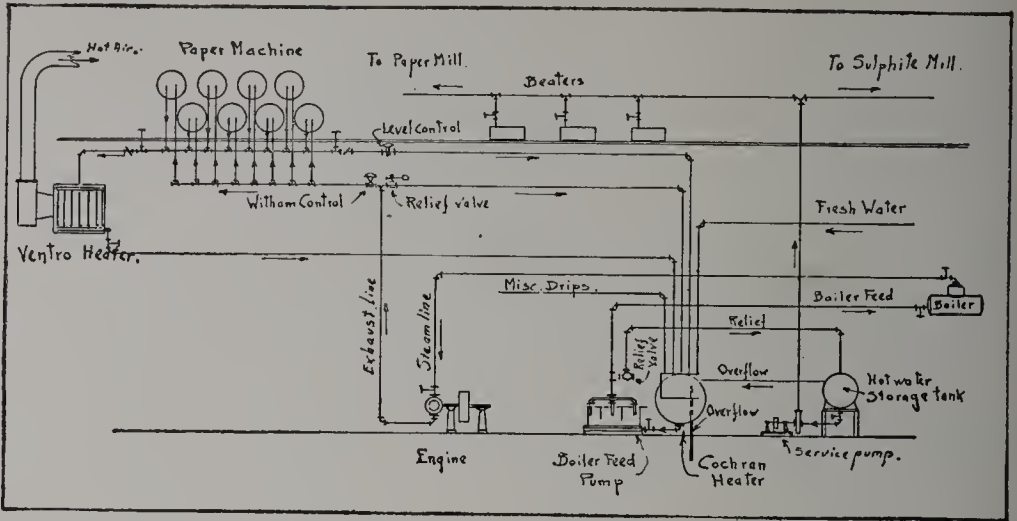 Hot Air.
Paper Machine
To Paper Mill.
Beaters
To Sulphite Mill.
Level Control
Witham Control
Relief valve
Fresh Water
Ventro Heater.
Misc. Drips.
Boiler Feed
Boiler
Exhaust line
Steam line
Relief Valve
Relief
Overflow
Hot water
Storage tank
Overflow
Engine
Boiler Feed
Pump
Cochran
Heater
Service pump.